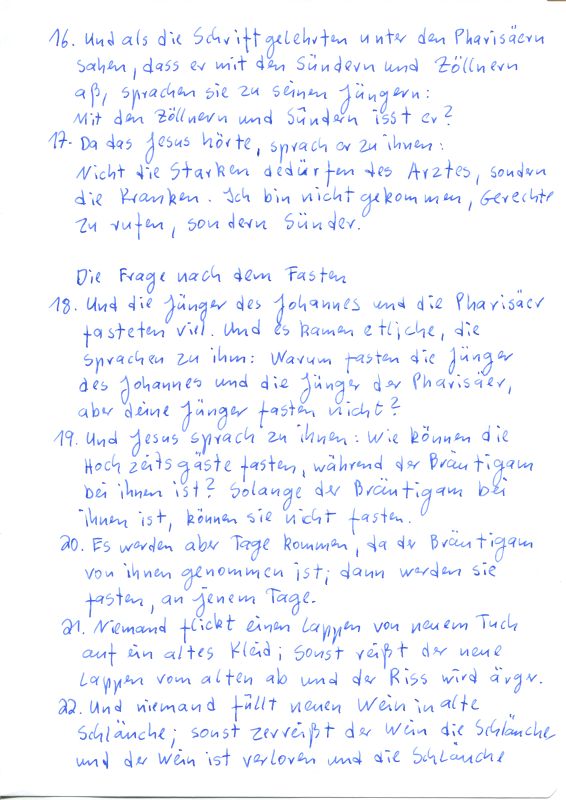 16. Und als die Schriftgelehrten unter den Pharisäern
sahen, dass er mit den Sündern und Zöllnern
aß, sprachen sie zu seinen Jüngern:
Mit den Zöllnern und Sündern isst er?
17. Da das Jesus hörte, sprach er zu ihnen:
Nicht die Starken bedürfen des Arztes, sondern
die Kranken. Ich bin nicht gekommen, Gerechte
zu rufen, sondern Sünder.
Die Frage nach dem Fasten
18. Und die Jünger des Johannes und die Pharisäer
fasteten viel. Und es kamen etliche, die
sprachen zu ihm: Warum fasten die Jünger
des Johannes und die Jünger der Pharisäer,
aber deine Jünger fasten nicht?
19. Und Jesus sprach zu ihnen: Wie können die
Hochzeitsgäste fasten, während der Bräutigam
bei ihnen ist? Solange der Bräutigam bei
ihnen ist, können sie nicht fasten.
20. Es werden aber Tage kommen, da der Bräutigam
von ihnen genommen ist; dann werden sie
fasten, an jenem Tage.
21. Niemand flickt einen Lappen von neuem Tuch
auf ein altes Kleid; sonst reißt der neue
Lappen vom alten ab und der Riss wird ärger.
22. Und niemand füllt neuen Wein in alte
Schläuche; sonst zerreißt der Wein die Schläuche
und der Wein ist verloren und die Schläuche